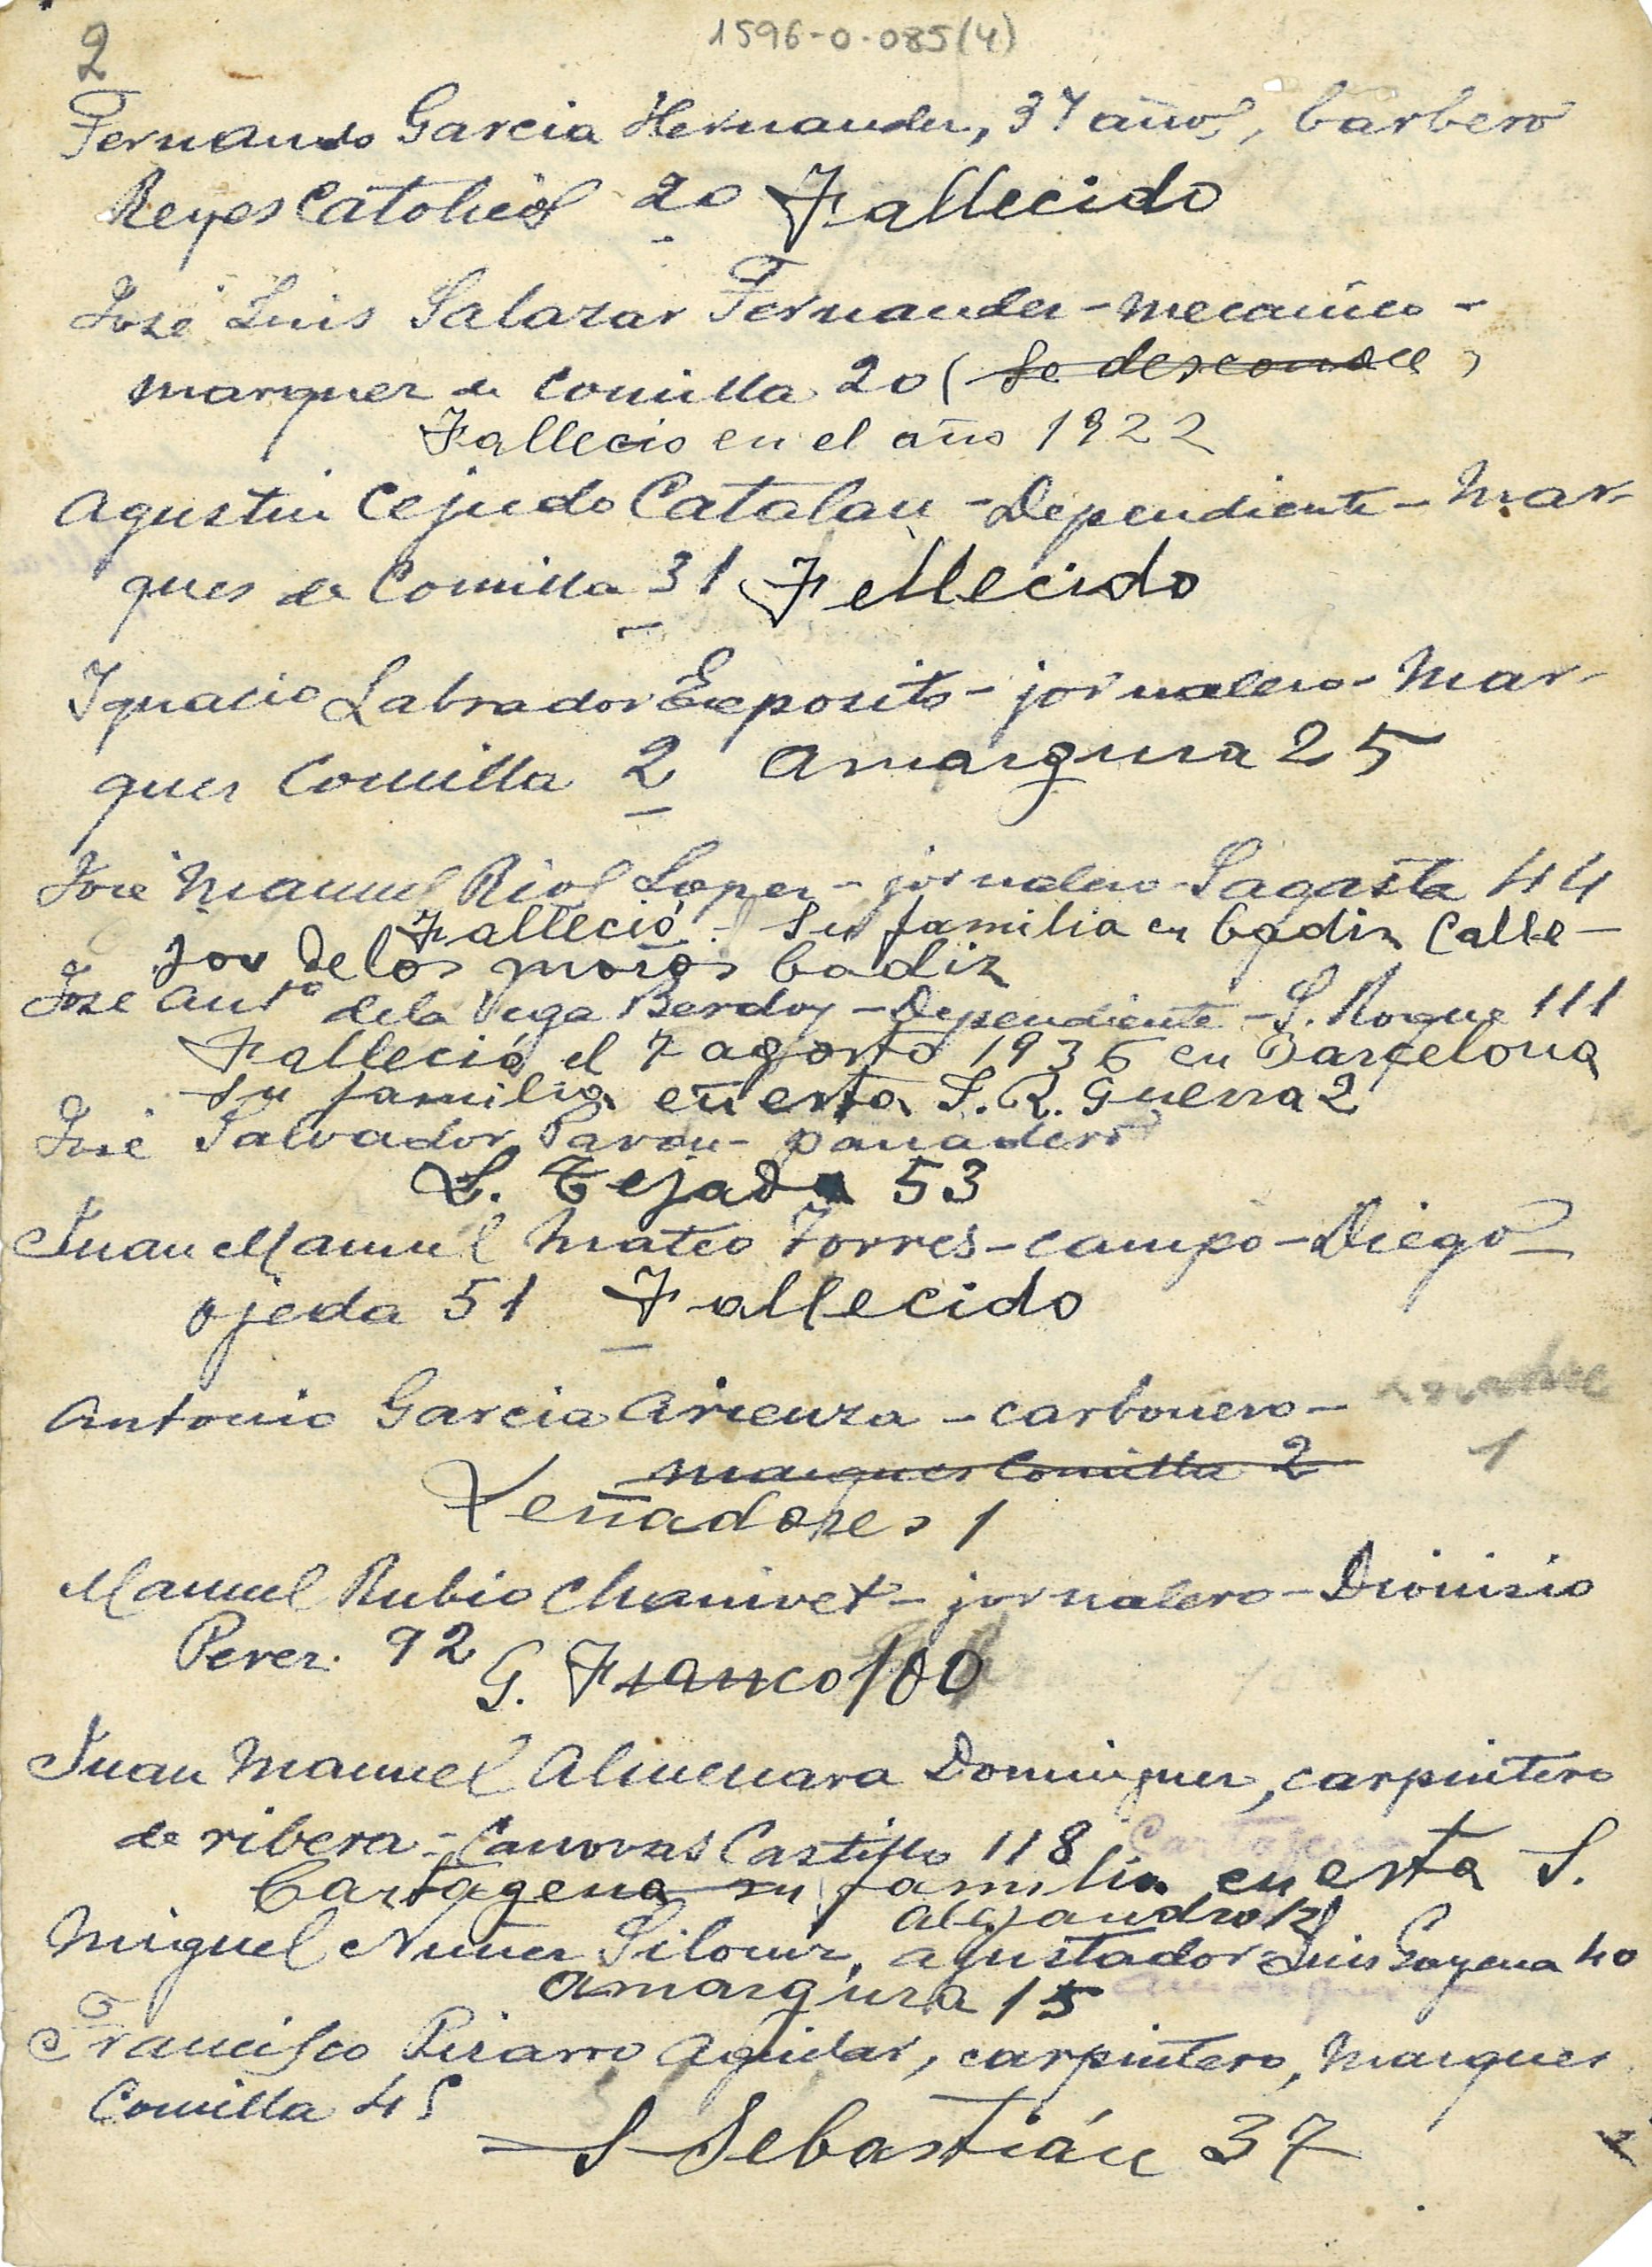 1596-0-085(4)
2
Fernando Garcia Hernandez, 37 años, barbero
Reyes Catolicos 20 Fallecido
José Luis Salazar Fernandez - mecanico -
marquez de Comilla 20 ( Se desconoce )
Fallecio en el año 1922
Agustin Cejudo Catalan - Dependiente - Mar-
ques de Comilla 31 Fellecido
Ignacio Labrador Exposito - jornalero - Mar-
ques Comilla 2 Amargura 25
José Manuel Rios Lopez - jornalero - Sagasta 44
Falleció - Su familia en Cadiz Calle -
de los moros Cadiz
José Antº de la Vega Berdoy - Dependiente - S. Roque 111
Falleció el 7 agosto 1936 en Barcelona
su familia en esta S. R. Guerra 2
José Salvador Pavon - panadero
L. Tejada 53
Juan Manuel Mateo Torres - campo - Diego
ojeda 51 Fallecido
Antonio Garcia Arienza - carbonero -
marques Comilla 2 1
Leñadores 1
Manuel Rubio Chanivet - jornalero - Dionisio
Perez. 92 G. Franco 100
Juan Manuel Almenara Dominguez, carpintero
de ribera - Canovas Castillo 118 Cartagena
Cartagena su familia en esta S.
Alejandro 12
Miguel Nuñez, ajustador - Luis 40
Amargura 15
Francisco Pizarro Aguilar, carpintero, Marques
Comilla 45
S Sebastián 37